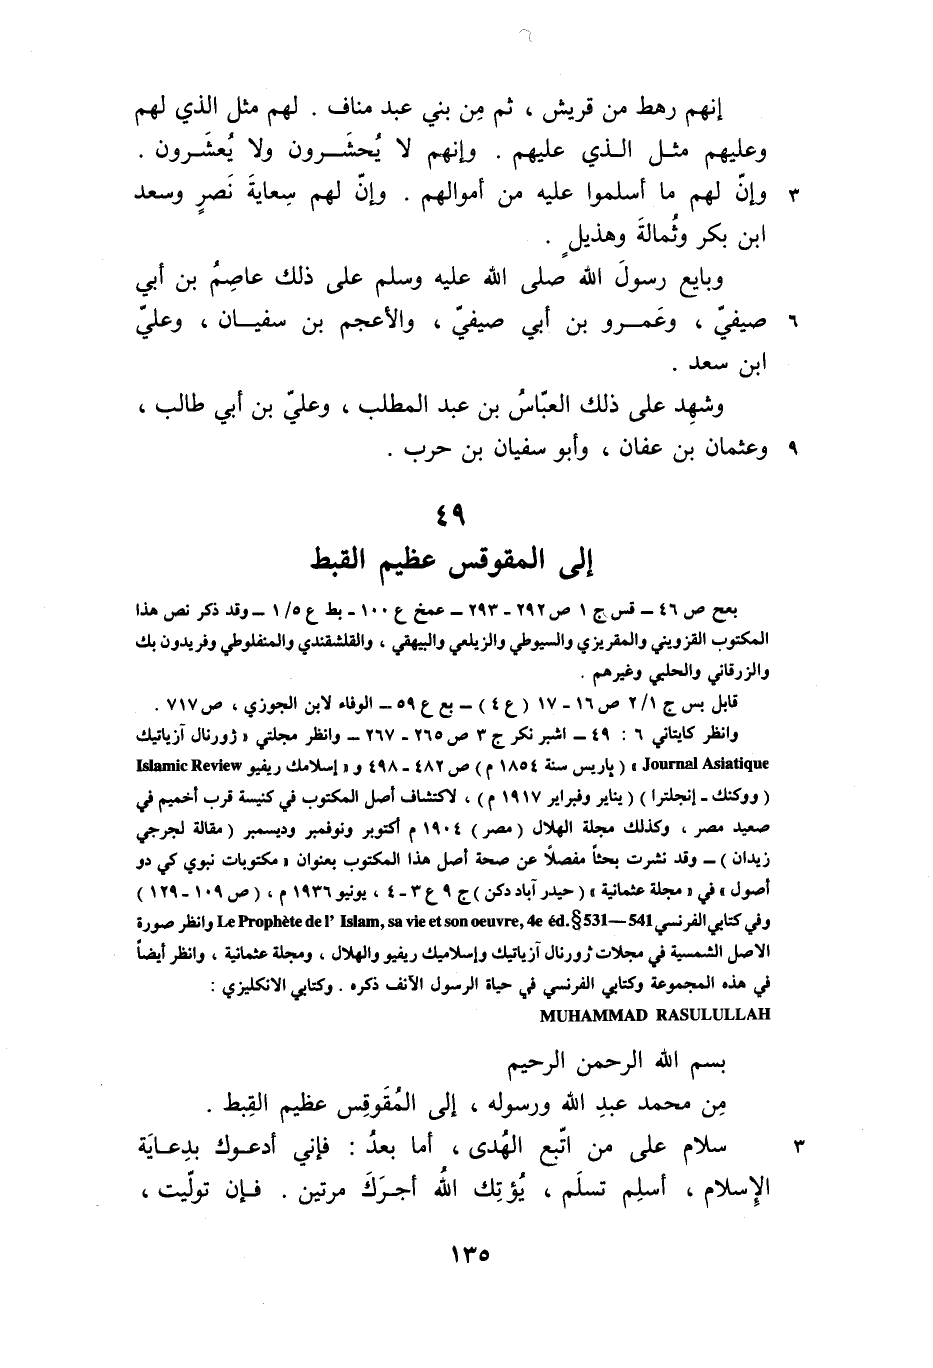 إنهم رهط من قريش ، ثم مِن بني عبد مناف . لهم مثل الذي لهم
وعليهم مثل الذي عليهم . وإنهم لا يُحشَرون ولا يُعشَرون .
٣ وإنّ لهم ما أسلموا عليه من أموالهم . وإنّ لهم سِعايةَ نَصرٍ وسعد
ابن بكر وثُمالةَ وهذيلٍ .
وبايع رسولَ الله صلى الله عليه وسلم على ذلك عاصِمُ بن أبي
٦ صيفيّ ، وعَمرو بن أبي صيفيّ ، والأعجم بن سفيان ، وعليّ
ابن سعد .
وشهِد على ذلك العبّاسُ بن عبد المطلب ، وعليّ بن أبي طالب ،
٩ وعثمان بن عفان ، وأبو سفيان بن حرب .
٤٩
إلى المقوقس عظيم القبط
بعح ص ٤٦ ــ قس ج ١ ص ٢٩٢ - ٢٩٣ ــ عمخ ع ١٠٠ - بط ع ١/٥ ــ وقد ذكر نص هذا
المكتوب القزويني والمقريزي والسيوطي والزيلعي والبيهقي ، والقلشقندي والمنفلوطي وفريدون بك
والزرقاني والحلبي وغيرهم .
قابل بس ج ٢/١ ص ١٦ - ١٧ ( ع ٤ ) ــ بع ع ٥٩ ــ الوفاء لابن الجوزي ، ص ٧١٧ .
وانظر كايتاني ٦ : ٤٩ ــ اشبر نكر ج ٣ ص ٢٦٥ - ٢٦٧ ــ وانظر مجلتي « ژورنال آزياتيك
Journal Asiatique » ( باريس سنة ١٨٥٤ م ) ص ٤٨٢ - ٤٩٨ و « إسلامك ريفيو Islamic Review
( ووكنك - إنجلترا ) ( يناير وفبراير ١٩١٧ م ) ، لاكتشاف أصل المكتوب في كنيسة قرب أخميم في
صعيد مصر ، وكذلك مجلة الهلال ( مصر ) ١٩٠٤ م أكتوبر ونوفمبر وديسمبر ( مقالة لجرجي
زيدان ) ــ وقد نشرت بحثاً مفصلاً عن صحة أصل هذا المكتوب بعنوان « مكتوبات نبوي كي دو
أصول » في « مجلة عثمانية » ( حيدر آباد دكن ) ج ٩ ع ٣ - ٤ ، يونيو ١٩٣٦ م ، ( ص ١٠٩ - ١٢٩ )
وفي كتابي الفرنسي Le Prophète de l' Islam, sa vie et son oeuvre, 4e éd. § 531—541 وانظر صورة
الاصل الشمسية في مجلات ژورنال آزياتيك وإسلاميك ريفيو والهلال ، ومجلة عثمانية ، وانظر أيضاً
في هذه المجموعة وكتابي الفرنسي في حياة الرسول الآنف ذكره . وكتابي الانكليزي :
MUHAMMAD RASULULLAH
بسم الله الرحمن الرحيم
مِن محمد عبدِ الله ورسوله ، إلى المُقَوقِس عظيم القِبط .
٣ سلام على من اتّبع الهُدى ، أما بعدُ : فإني أدعوك بدِعايَة
الإِسلام ، أسلِم تسلَم ، يُؤتِك اللهُ أجرَكَ مرتين . فإن تولّيت ،
١٣٥